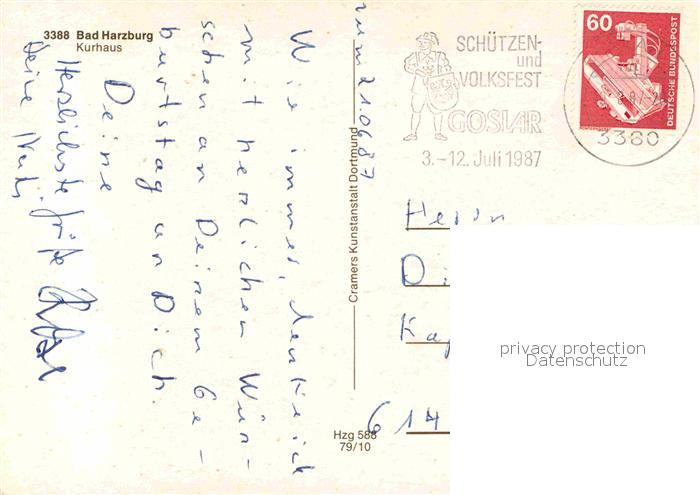 3388 Bad Harzburg
Kurhaus
zum 21.06.87
Wie immer, denke ich
mit herzlichen Wün-
schen an Deinen Ge-
burtstag an Dich.
Deine
Herzlichste Grüße
Deine
Cramers Kunstanstalt Dortmund
Hzg 588
79/10
SCHÜTZEN-
und
VOLKSFEST
GOSLAR
3.–12. Juli 1987
60
DEUTSCHE BUNDESPOST
3380
Herrn
D
Ka
614
privacy protection
Datenschutz